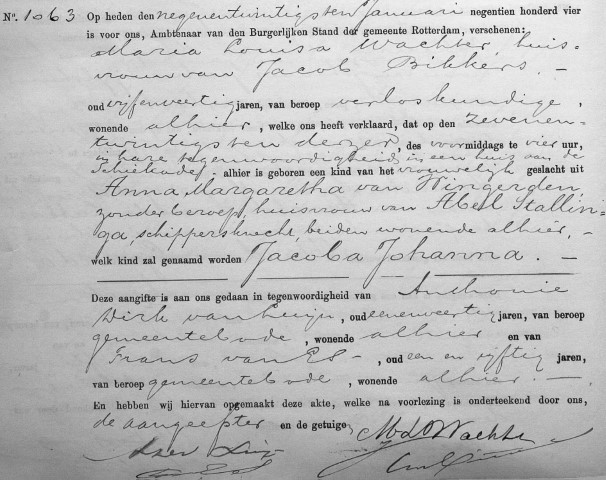 No. 1063 Op heden den negenentwintigsten Januari negentien honderd vier
is voor ons, Ambtenaar van den Burgerlijken Stand der gemeente Rotterdam, verschenen:
Maria Louisa Wachter, huis-
vrouw van Jacob Bikkers. –
oud vijfenveertig jaren, van beroep verloskundige,
wonende alhier, welke ons heeft verklaard, dat op den zevenen-
twintigsten dezer, des voormiddags te vier uur,
in hare tegenwoordigheid in een huis aan de
Schiekade, alhier is geboren een kind van het vrouwelijk geslacht uit
Anna Margaretha van Wingerden,
zonder beroep, huisvrouw van Abel Stallin-
ga, schippersknecht, beiden wonende alhier, –
welk kind zal genaamd worden Jacoba Johanna. –
Deze aangifte is aan ons gedaan in tegenwoordigheid van Anthonie
Dirk van, oud eenenveertig jaren, van beroep
gemeentebode, wonende alhier en van
Frans van Es –, oud een en vijftig jaren,
van beroep gemeentebode, wonende alhier. –
En hebben wij hiervan opgemaakt deze akte, welke na voorlezing is onderteekend door ons,
de aangeefster en de getuigen
Wachter